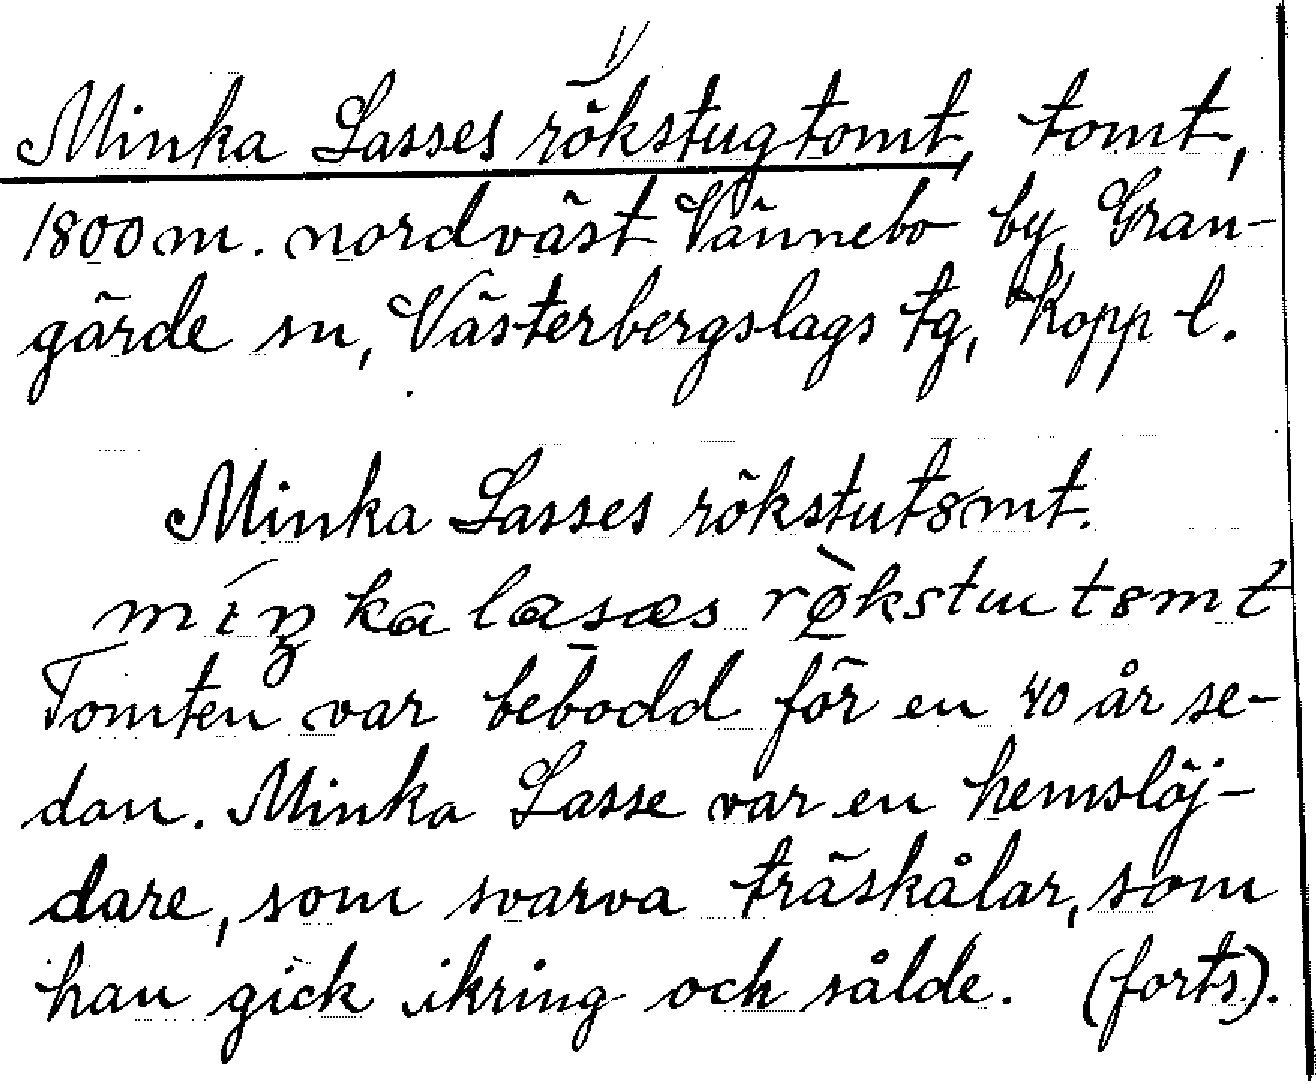 1)
Minka Lasses rökstugtomt, tomt,
1800 m. nordväst Vännebo by, Gran-
gärde sn, Västerbergslags tg, Kopp l.
Minka Lasses rökstutomt.
Tomten var bebodd för en 40 år se-
dan. Minka Lasse var en hemslöj-
dare, som svarva träskålar, som
han gick ikring och sålde. (forts).